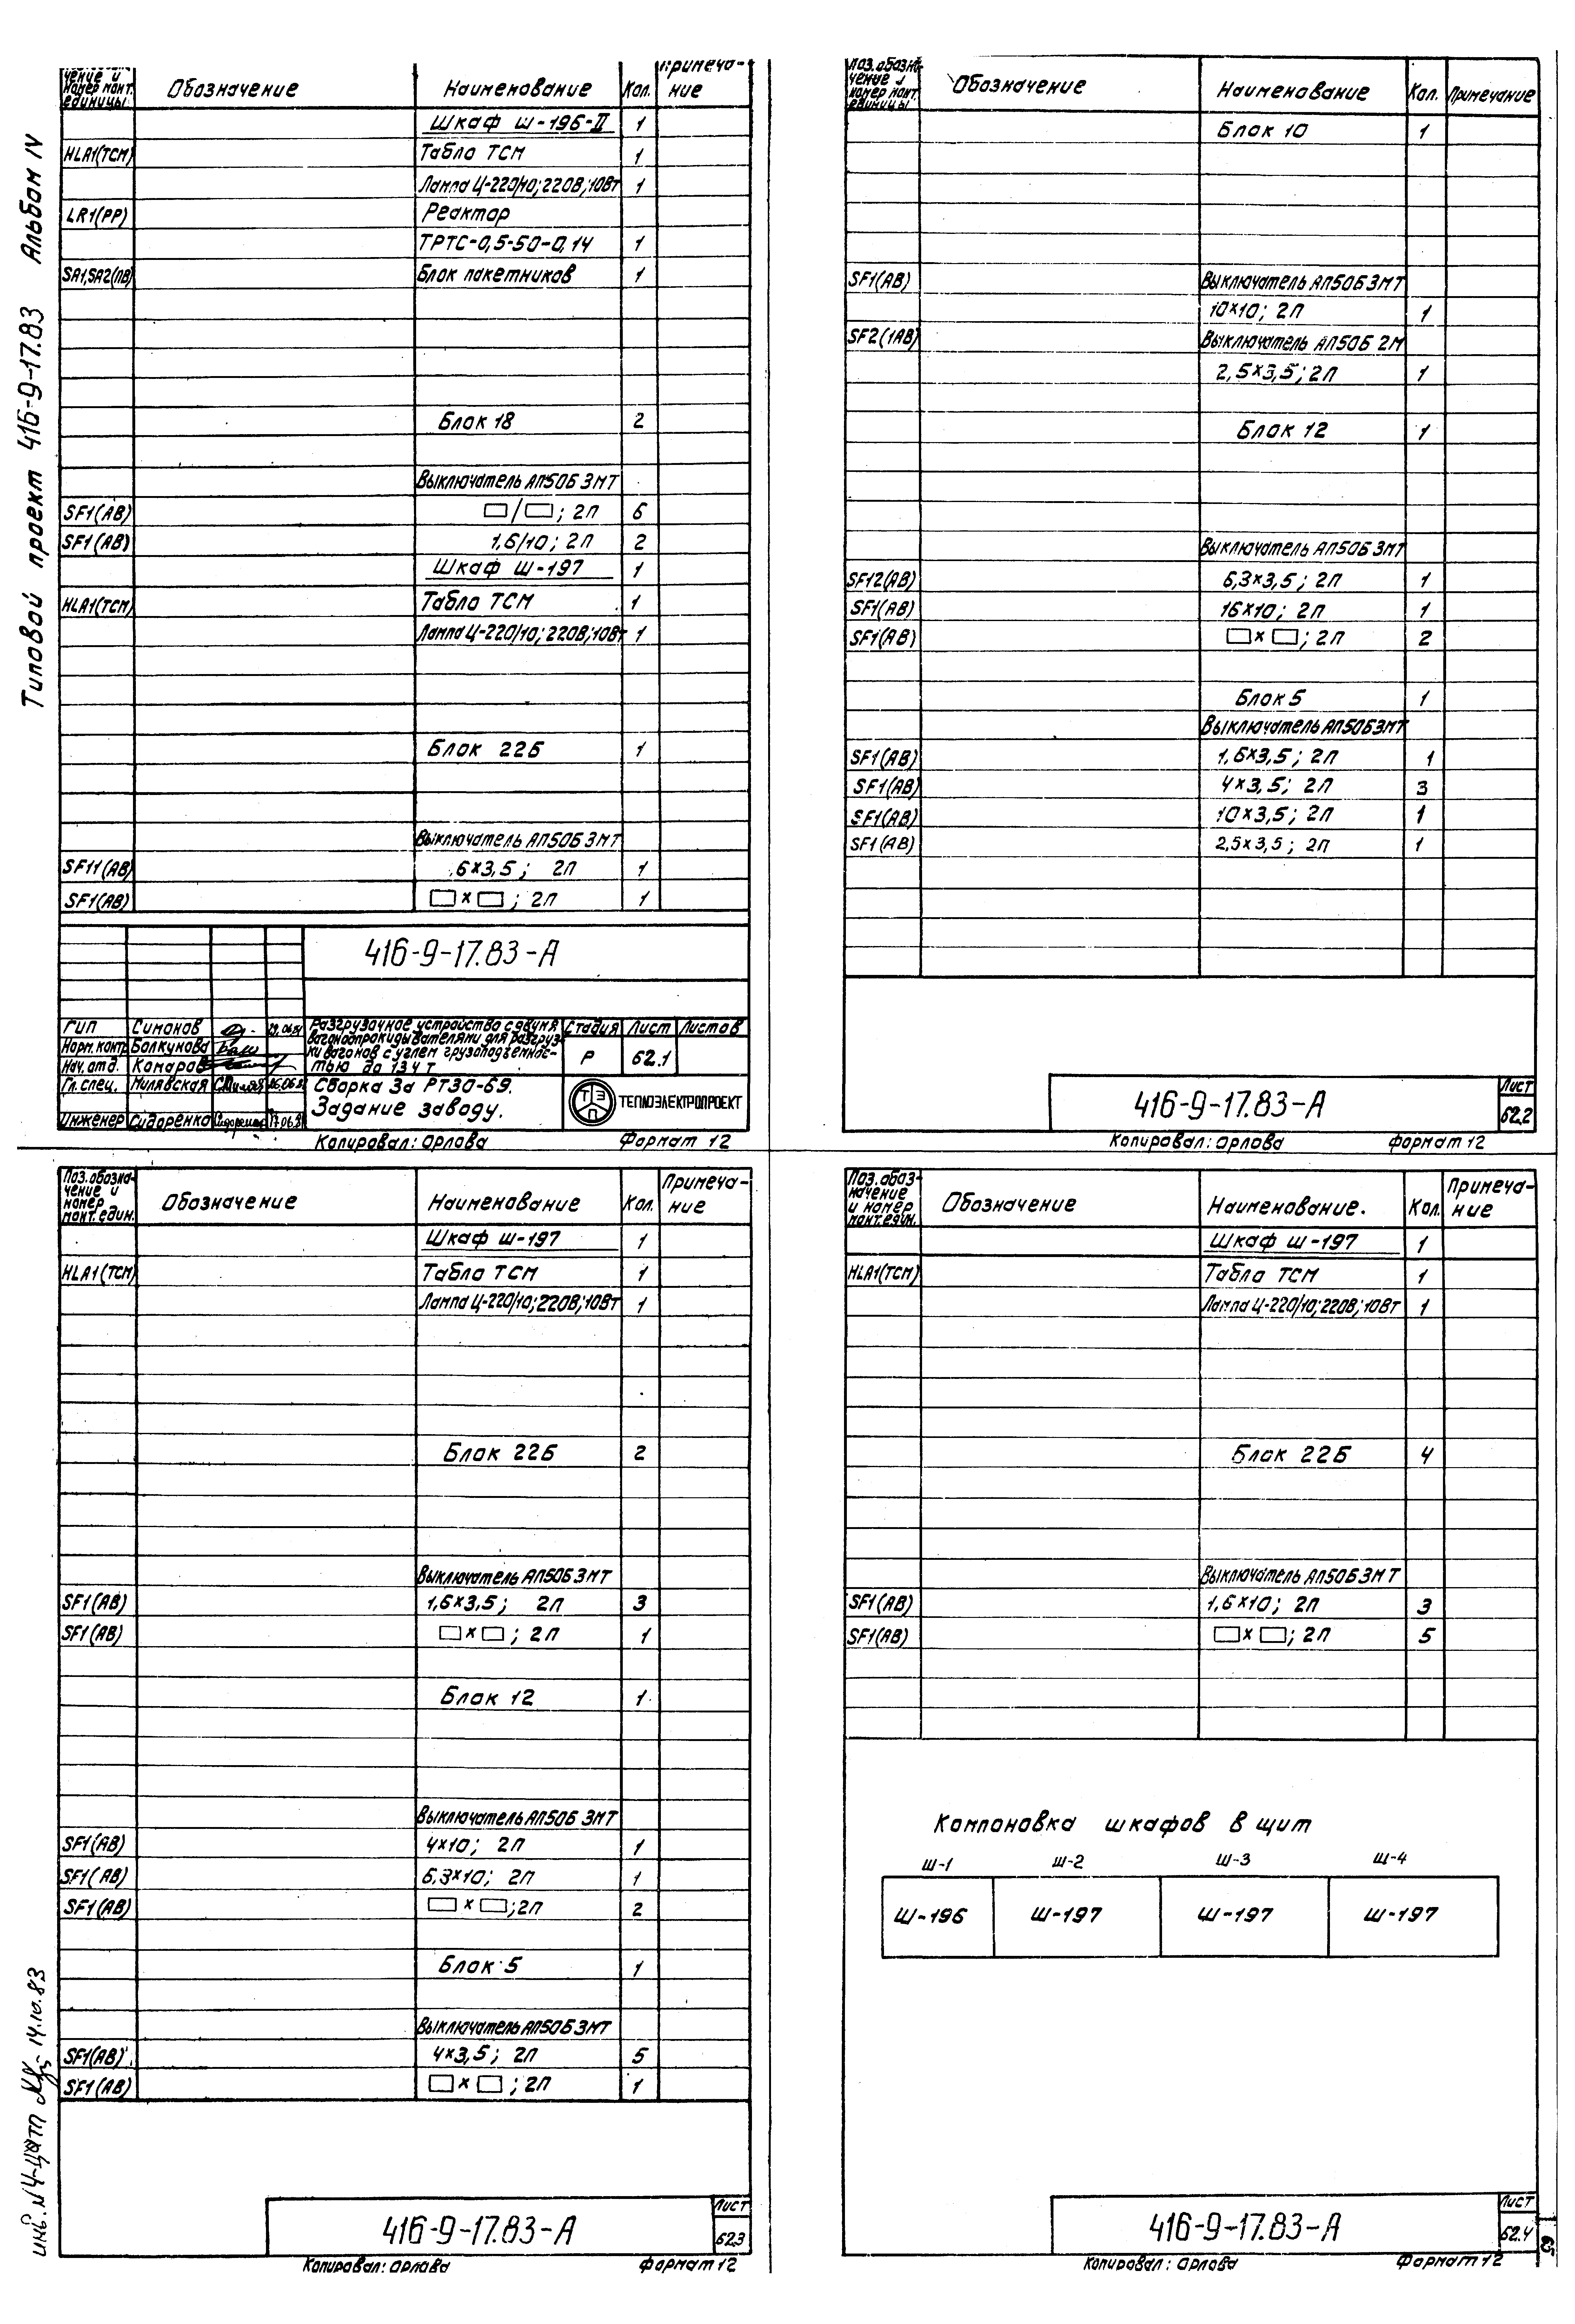 Типовой проект 416-9-17.83 Альбом IV
чение и номер монт. единицы Обозначение Наименование Кол. Примеча-ние
Шкаф Ш-196-II 1
HLA1(ТСМ) Табло ТСМ 1
Лампа Ц-220/10; 220В; 10Вт 1
LR1(РР) Реактор
ТРТС-0,5-50-0,14 1
SA1,SA2(ПВ) Блок пакетников 1
Блок 18 2
Выключатель АП50Б 3МТ
SF1(АВ) □/□; 2П 6
SF1(АВ) 1,6/10; 2П 2
Шкаф Ш-197 1
HLA1(ТСМ) Табло ТСМ 1
Лампа Ц-220/10; 220В; 10Вт 1
Блок 22Б 1
Выключатель АП50Б 3МТ
SF11(АВ) 6×3,5; 2П 1
SF1(АВ) □×□; 2П 1
416-9-17.83-А
ГИП Симонов
Норм.контр Болкунова
Нач. отд. Комаров
Гл. спец. Милявская
Инженер Сидоренко
Разгрузочное устройство с двумя
вагоноопрокидывателями для разгруз-
ки вагонов с углем грузоподъемнос-
тью до 134 т
Стадия Лист Листов
Р 62.1
Сборка 3а РТ30-69.
Задание заводу.
ТЕПЛОЭЛЕКТРОПРОЕКТ
Копировал: Орлова Формат 12
Поз. обозна-чение и номер монт. единицы Обозначение Наименование Кол. Примечание
Блок 10 1
SF1(АВ) Выключатель АП50Б 3МТ
10×10; 2П 1
SF2(1АВ) Выключатель АП50Б 2М
2,5×3,5; 2П 1
Блок 12 1
Выключатель АП50Б 3МТ
SF12(АВ) 6,3×3,5; 2П 1
SF1(АВ) 16×10; 2П 1
SF1(АВ) □×□; 2П 2
Блок 5 1
Выключатель АП50Б 3МТ
SF1(АВ) 1,6×3,5; 2П 1
SF1(АВ) 4×3,5; 2П 3
SF1(АВ) 10×3,5; 2П 1
SF1(АВ) 2,5×3,5; 2П 1
416-9-17.83-А
Лист
62.2
Копировал: Орлова Формат 12
Поз. обозна-чение и номер монт. един. Обозначение Наименование Кол. Примеча-ние
Шкаф Ш-197 1
HLA1(ТСМ) Табло ТСМ 1
Лампа Ц-220/10; 220В; 10Вт 1
Блок 22Б 2
Выключатель АП50Б 3МТ
SF1(АВ) 1,6×3,5; 2П 3
SF1(АВ) □×□; 2П 1
Блок 12 1
Выключатель АП50Б 3МТ
SF1(АВ) 4×10; 2П 1
SF1(АВ) 6,3×10; 2П 1
SF1(АВ) □×□; 2П 2
Блок 5 1
Выключатель АП50Б 3МТ
SF1(АВ) 4×3,5; 2П 5
SF1(АВ) □×□; 2П 1
416-9-17.83-А
Лист
62.3
Копировал: Орлова Формат 12
Поз. обоз-начение и номер монт. един. Обозначение Наименование. Кол. Примеча-ние
Шкаф Ш-197 1
HLA1(ТСМ) Табло ТСМ 1
Лампа Ц-220/10; 220В; 10Вт 1
Блок 22Б 4
Выключатель АП50Б 3МТ
SF1(АВ) 1,6×10; 2П 3
SF1(АВ) □×□; 2П 5
Компоновка шкафов в щит
Ш-1 Ш-2 Ш-3 Ш-4
Ш-196 Ш-197 Ш-197 Ш-197
416-9-17.83-А
Лист
62.4
Копировал: Орлова Формат 12
14.10.83